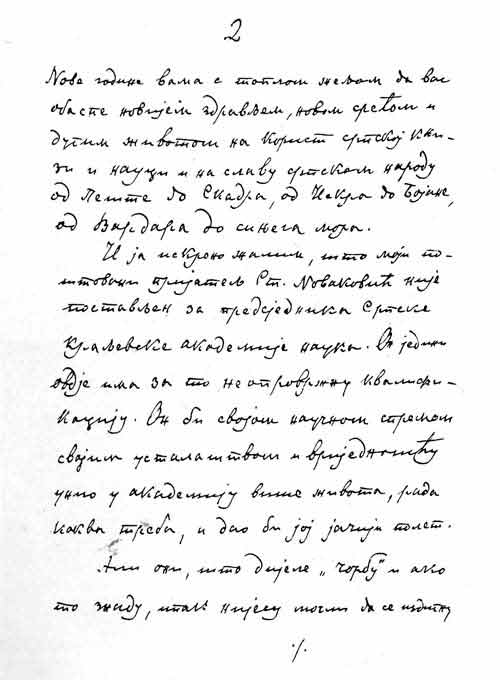 2
Нове године вама с топлом жељом да вас
обаспе новијем здрављем, новом срећом и
дугим животом на корист српској књи-
зи и науци и на славу српском народу
од Пеште до Скадра, од Искра до Бојане,
од Вардара до синега мора.
И ја искрено жалим, што моји по-
штовани пријатељ Ст. Новаковић није
постављен за предсједника Српске
Краљевске академије наука. Он једини
овдје има за то неопровржну квалифи-
кацију. Он би својом научном спремом
својим усталаштвом и вриједношћу
унио у академију више живота, рада
каква треба, и дао би јој јачији полет.
Али они, што дијеле „чорбу" и ако
то знаду, ипак нијесу могли да се издигну
./.